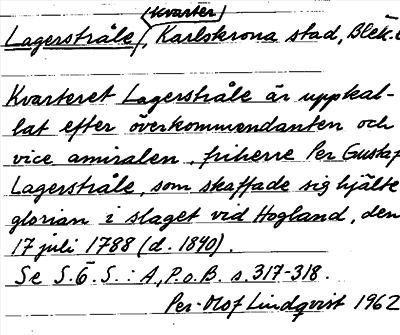 (kvarter)
Lagerstråle, Karlskrona stad, Blek.
Kvarteret Lagerstråle är uppkal-
lat efter överkommendanten och
vice amiralen, friherre Per Gustaf
Lagerstråle, som skaffade sig hjälte
glorian i slaget vid Hogland, den
17 juli 1788 (d. 1840).
Se S.Ö.S.: A, P.o.B. s. 317-318.
Per-Olof Lindqvist 1962